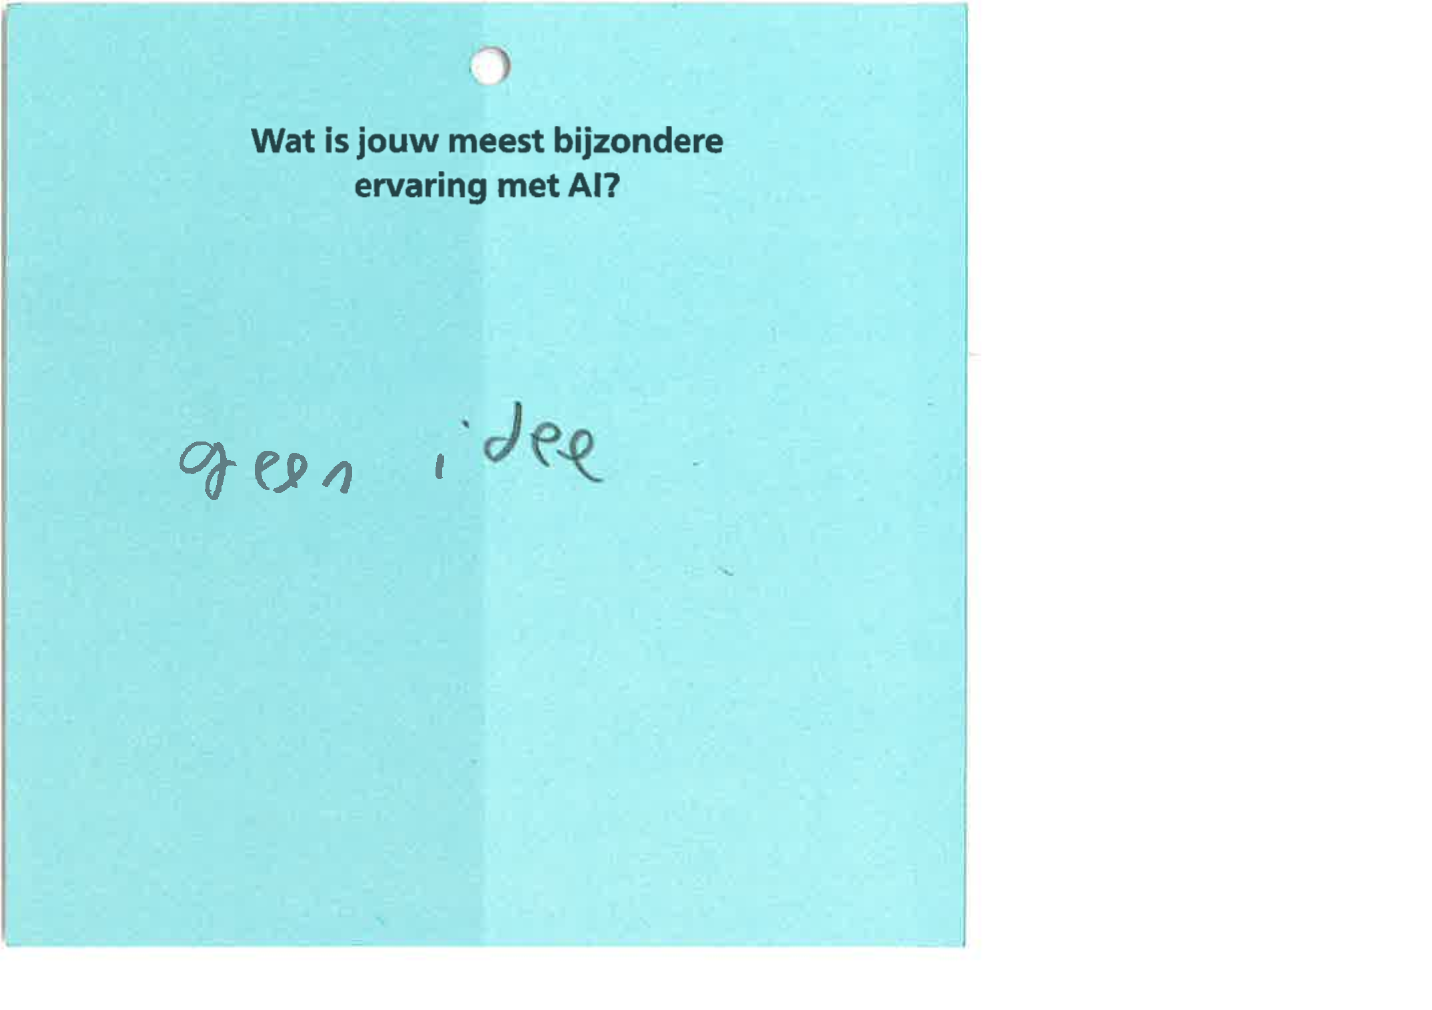 Wat is jouw meest bijzondere
ervaring met AI?
geen idee